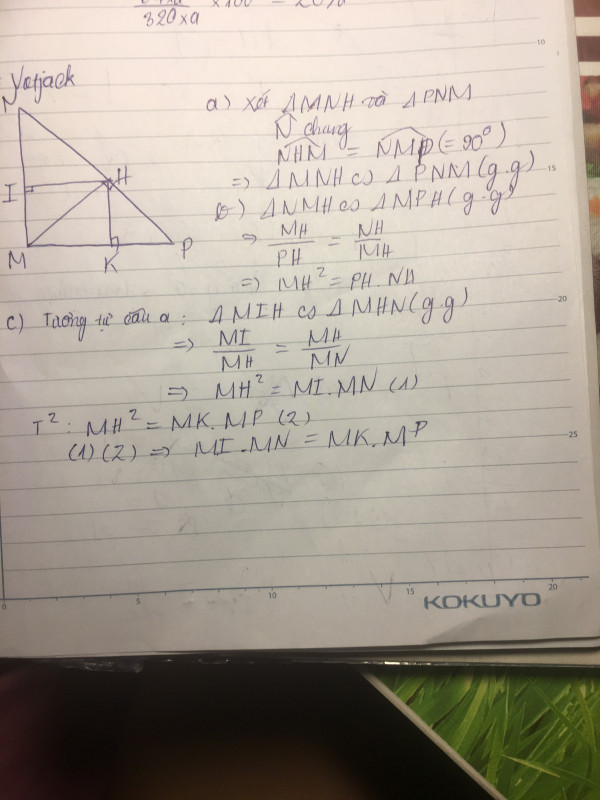 320×a ×100 = 20%
Vietjack
N
H
I
M
K
P
a) Xét ΔMNH và ΔPNM
N̂ chung
NHM = NMP (= 90°)
=> ΔMNH ∽ ΔPNM (g.g)
b) ΔNMH ∽ ΔMPH (g.g)
=> MH/PH = NH/MH
=> MH² = PH.NH
c) Tương tự câu a: ΔMIH ∽ ΔMHN (g.g)
=> MI/MH = MH/MN
=> MH² = MI.MN (1)
T²: MH² = MK.MP (2)
(1)(2) => MI.MN = MK.MP
10
15
20
25
0 5 10 15 20
KOKUYO